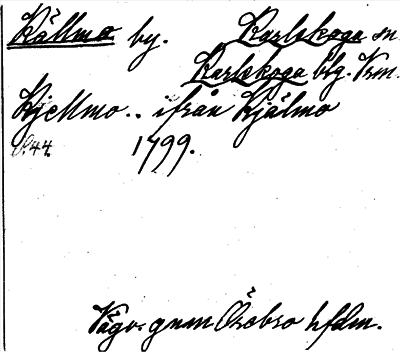 Kållmo by. Karlskoga sn.
Karlskoga bg. Vrm.
Kjellmo.. ifrån Kjälmo
P.44. 1799.
Vägv. gnm Örebro hfdm.